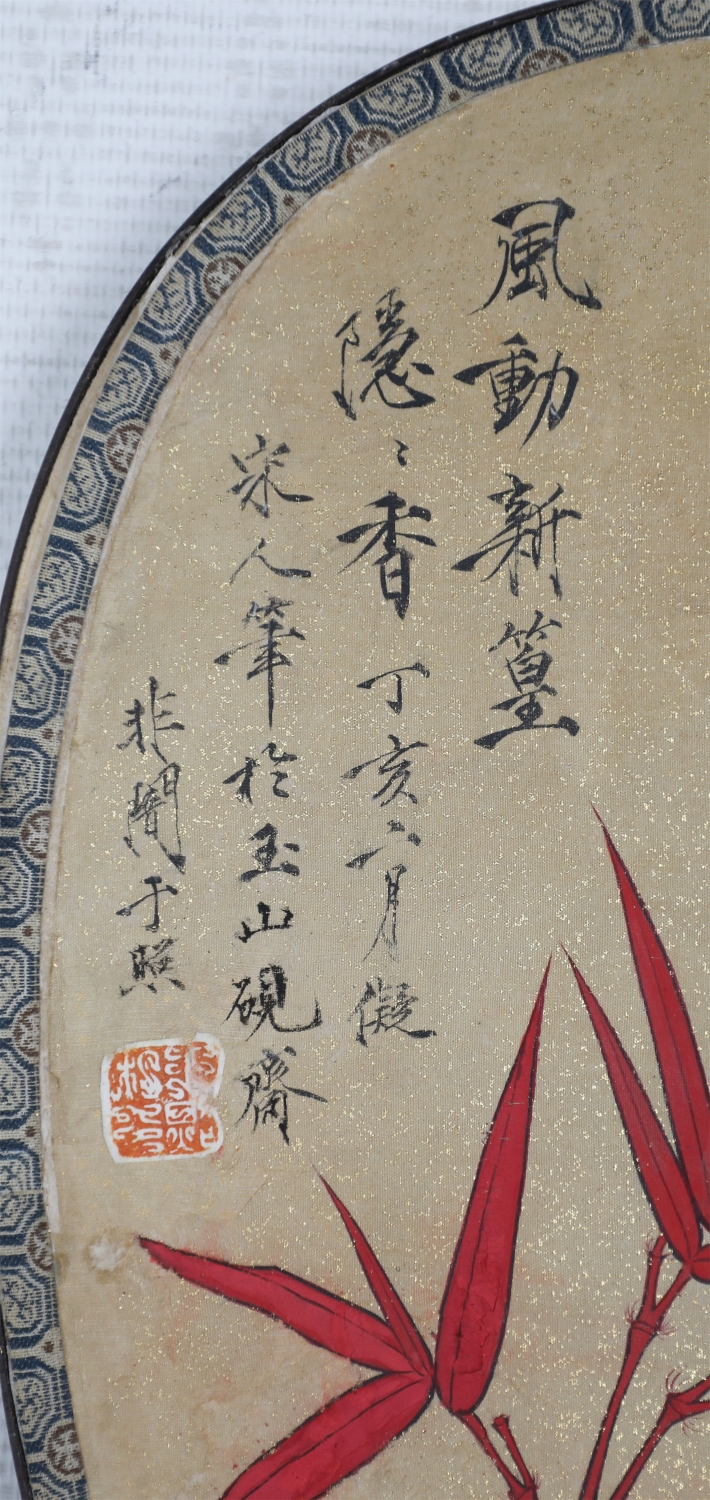 風動新篁
隱〻香 丁亥六月儗
宋人筆於玉山硯齋
非闇于照